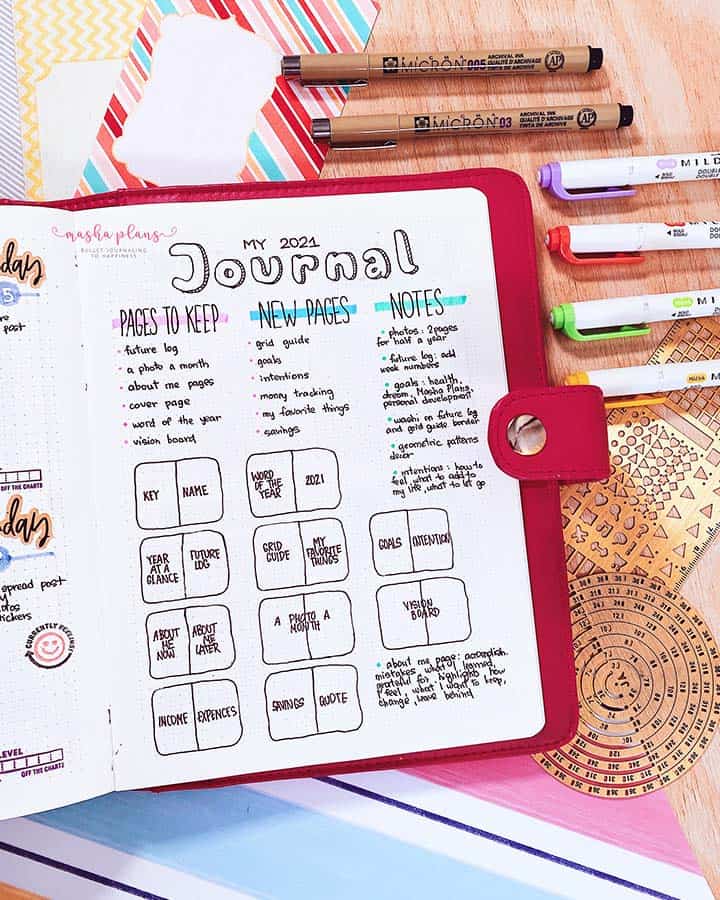 MICRON 005
ARCHIVAL INK
QUALITÉ D'ARCHIVAGE
TINTA DE ARCHIVO
AP
MICRON 03
ARCHIVAL INK
QUALITÉ D'ARCHIVAGE
TINTA DE ARCHIVO
AP
MILD
MILD
masha plans
BULLET JOURNALING
TO HAPPINESS
MY 2021
Journal
PAGES TO KEEP
future log
a photo a month
about me pages
cover page
word of the year
vision board
NEW PAGES
grid guide
goals
intentions
money tracking
my favorite things
savings
NOTES
photos: 2 pages
for half a year
future log: add
week numbers
goals: health,
dream, Masha Plans,
personal development
washi on future log
and grid guide border
geometric patterns
decor
intentions: how to
feel, what to add to
my life, what to let go
KEY NAME
WORD OF THE YEAR 2021
YEAR AT A GLANCE FUTURE LOG
GRID GUIDE MY FAVORITE THINGS
GOALS INTENTION
ABOUT ME NOW ABOUT ME LATER
A PHOTO A MONTH
VISION BOARD
INCOME EXPENCES
SAVINGS QUOTE
about me page: accomplish.
mistakes, what I learned,
grateful for, highlights, how
I feel, what I want to keep,
change, leave behind
day
5
post
OFF THE CHARTS
day
spread post
stickers
CURRENTLY FEELING
LEVEL
OFF THE CHARTS